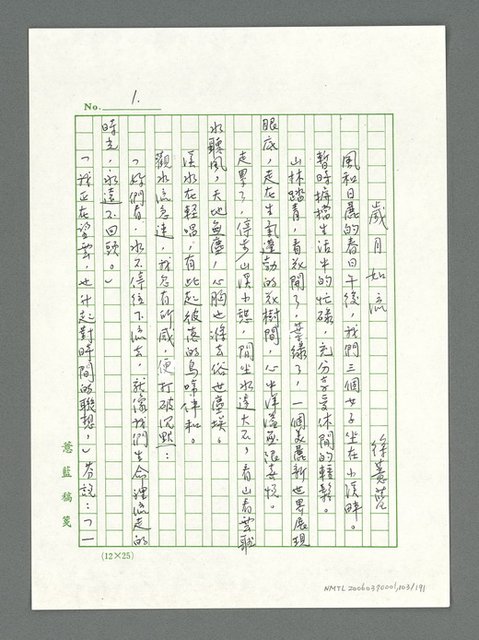 No. 1.
歲月如流
徐薏藍
風和日麗的春日午後，我們三個女子坐在小溪畔。
暫時摒擋生活中的忙碌，充分享受休閒的輕鬆。
山林踏青，看花開了，葉綠了，一個美麗新世界展現
眼底，走在生氣蓬勃的花樹間，心中洋溢無限喜悅。
走累了，停步山溪小憩，閒坐水邊大石，看山看雲聽
水聽風，天地無塵，心胸也滌去俗世塵埃。
溪水在輕唱，有此起彼落的鳥鳴伴和。
觀水流急速，我忽有所感，便打破沉默：
「妳們看，水不停往下流去，就像我們生命裡流走的
時光，永遠不回頭。」
「我正在望雲，也升起對時間的聯想，」芳說：「一
薏藍稿箋
(12×25)
NMTL 20060390001,103/191